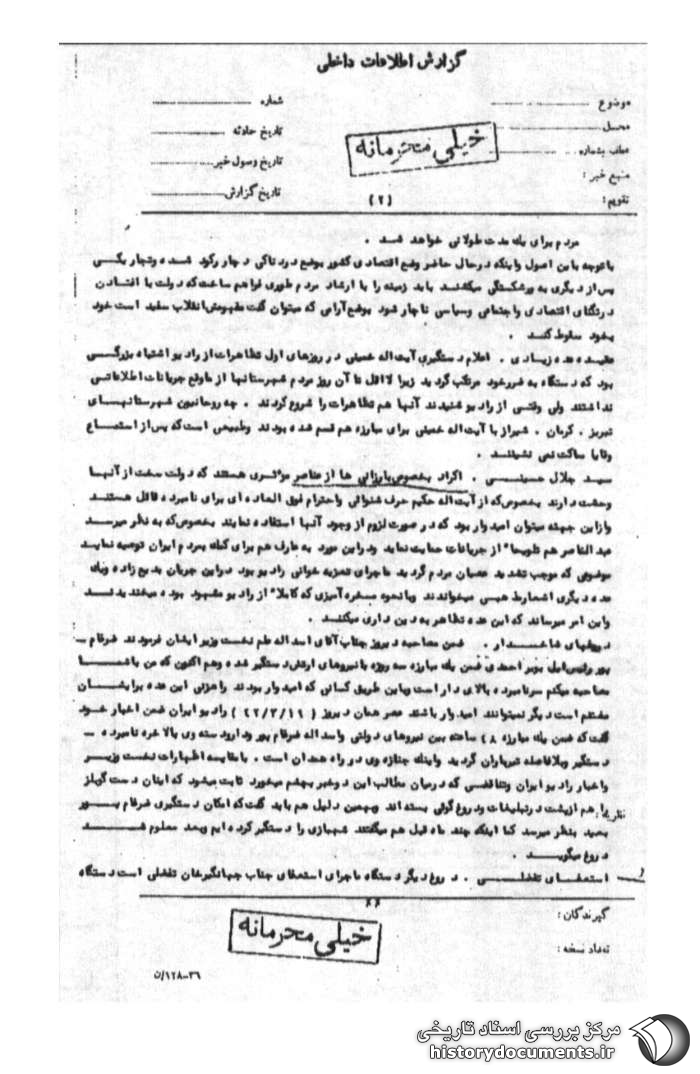 گزارش اطلاعات داخلی
موضوع
شماره
محل
تاریخ حادثه
خیلی محرمانه
عطف بشماره
تاریخ وصول خبر
منبع خبر :
تاریخ گزارش
تقویم :
(۲)
مردم برای یك مدت طولانی خواهد شد .
باتوجه باین اصول واینکه درحال حاضر وضع اقتصادی کشور بوضع دردناکی دچار رکود شده وتجار یکسی
پس از دیگری به ورشکستگی میکشند باید زمینه را با ارشاد مردم طوری فراهم ساخت که دولت با افتادن
درتنگنای اقتصادی واجتماعی وسیاسی ناچار شود بوضع آرامی که میتوان گفت مفهومش انقلاب سفید است خود
بخود سقوط کند .
عقیده عده زیادی . اعلام دستگیری آیت اله خمینی در روزهای اول تظاهرات از رادیو اشتباه بزرگسی
بود که دستگاه به ضرر خود مرتکب گردید زیرا لااقل تا آن روز مردم شهرستانها از ماوقع جریانات اطلاعاتی
نداشتند ولی وقتی از رادیو شنیدند آنها هم تظاهرات را شروع کردند . چه روحانیون شهرستانهای
تبریز . کرمان . شیراز با آیت اله خمینی برای مبارزه هم قسم شده بودند وطبیعی است که پس از استماع
وقایا ساکت نمی نشینند .
سید جلال حسینی . اکراد بخصوص بارزانی ها از عناصر موثری هستند که دولت سخت از آنها
وحشت دارند بخصوص که از آیت اله حکیم حرف شنوائی واحترام فوق العاده ای برای نامبرده قائل هستند
وازاین جهته میتوان امیدوار بود که در صورت لزوم از وجود آنها استفاده نمایند بخصوص که به نظر میرسد
عبدالناصر هم تلویحا" از جریانات حمایت نماید ودراین مورد به عارف هم برای کمك بمردم ایران توصیه نماید
موضوعی که موجب تشدید عصبان مردم گردید ماجرای تعزیه خوانی رادیو بود دراین جریان بدیع زاده ویك
عده دیگری اشعار میخواندند وبانحوه مسخره آمیزی که کاملا" از رادیو مشهود بوده میخندیدند
واین امر میرساند که این عده تظاهر به دین داری میکنند .
دروغهای شاخدار . ضمن مصاحبه دیروز جناب آقای اسداله علم نخست وزیر ایشان فرمودند ضرغام ـ
پور رئیس ایل بویر احمدی ضمن یك مبارزه سه روزه بانیروهای ارتش دستگیر شده وهم اکنون که من باشما
مصاحبه میکنم سرنامبرده بالای دار است وباین طریق کسانی که امیدوار بودند راهزنی این عده برایشان
مغتنم است دیگر نمیتوانند امیدوار باشند عصر همان دیروز ( ۴۲/۳/۱۹ ) رادیو ایران ضمن اخبار خود
گفت که ضمن یك مبارزه ۴۸ ساعته بین نیروهای دولتی واسداله ضرغام پور ودارودسته وی بالاخره نامبرده ـ
دستگیر وبلافاصله تیرباران گردید واینك جنازه وی در راه همدان است . بامقایسه اظهارات نخست وزیر
واخبار رادیو ایران وتناقضی که درمیان مطالب این دوخبر بچشم میخورد ثابت میشود که اینان دست گوبلز
نظریه : را هم ازپشت درتبلیغات ودروغ گوئی بسته اند وبهمین دلیل هم باید گفت که امکان دستگیری ضرغام پور
بعید بنظر میرسد کما اینکه چند ماه قبل هم میگفتند شهبازی را دستگیر کرده ایم وبعد معلوم شد
دروغ میگویند .
استعفای تفضلی . دروغ دیگر دستگاه ماجرای استعفای جناب جهانگیرخان تفضلی است دستگاه
۶۶
گیرندگان :
خیلی محرمانه
تعداد نسخه :
۳۶-۱۲۸/ن
مرکز بررسی اسناد تاریخی
historydocuments.ir